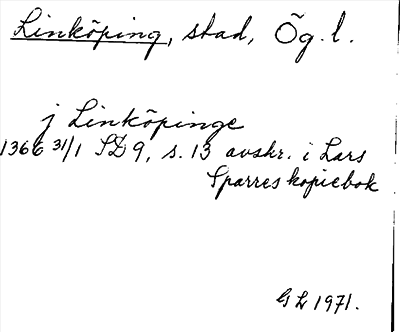 Linköping, stad, Ög. l.
j Linköpinge
1366 31/1 SD 9, s. 13 avskr. i Lars
Sparres kopiebok
GL 1971.